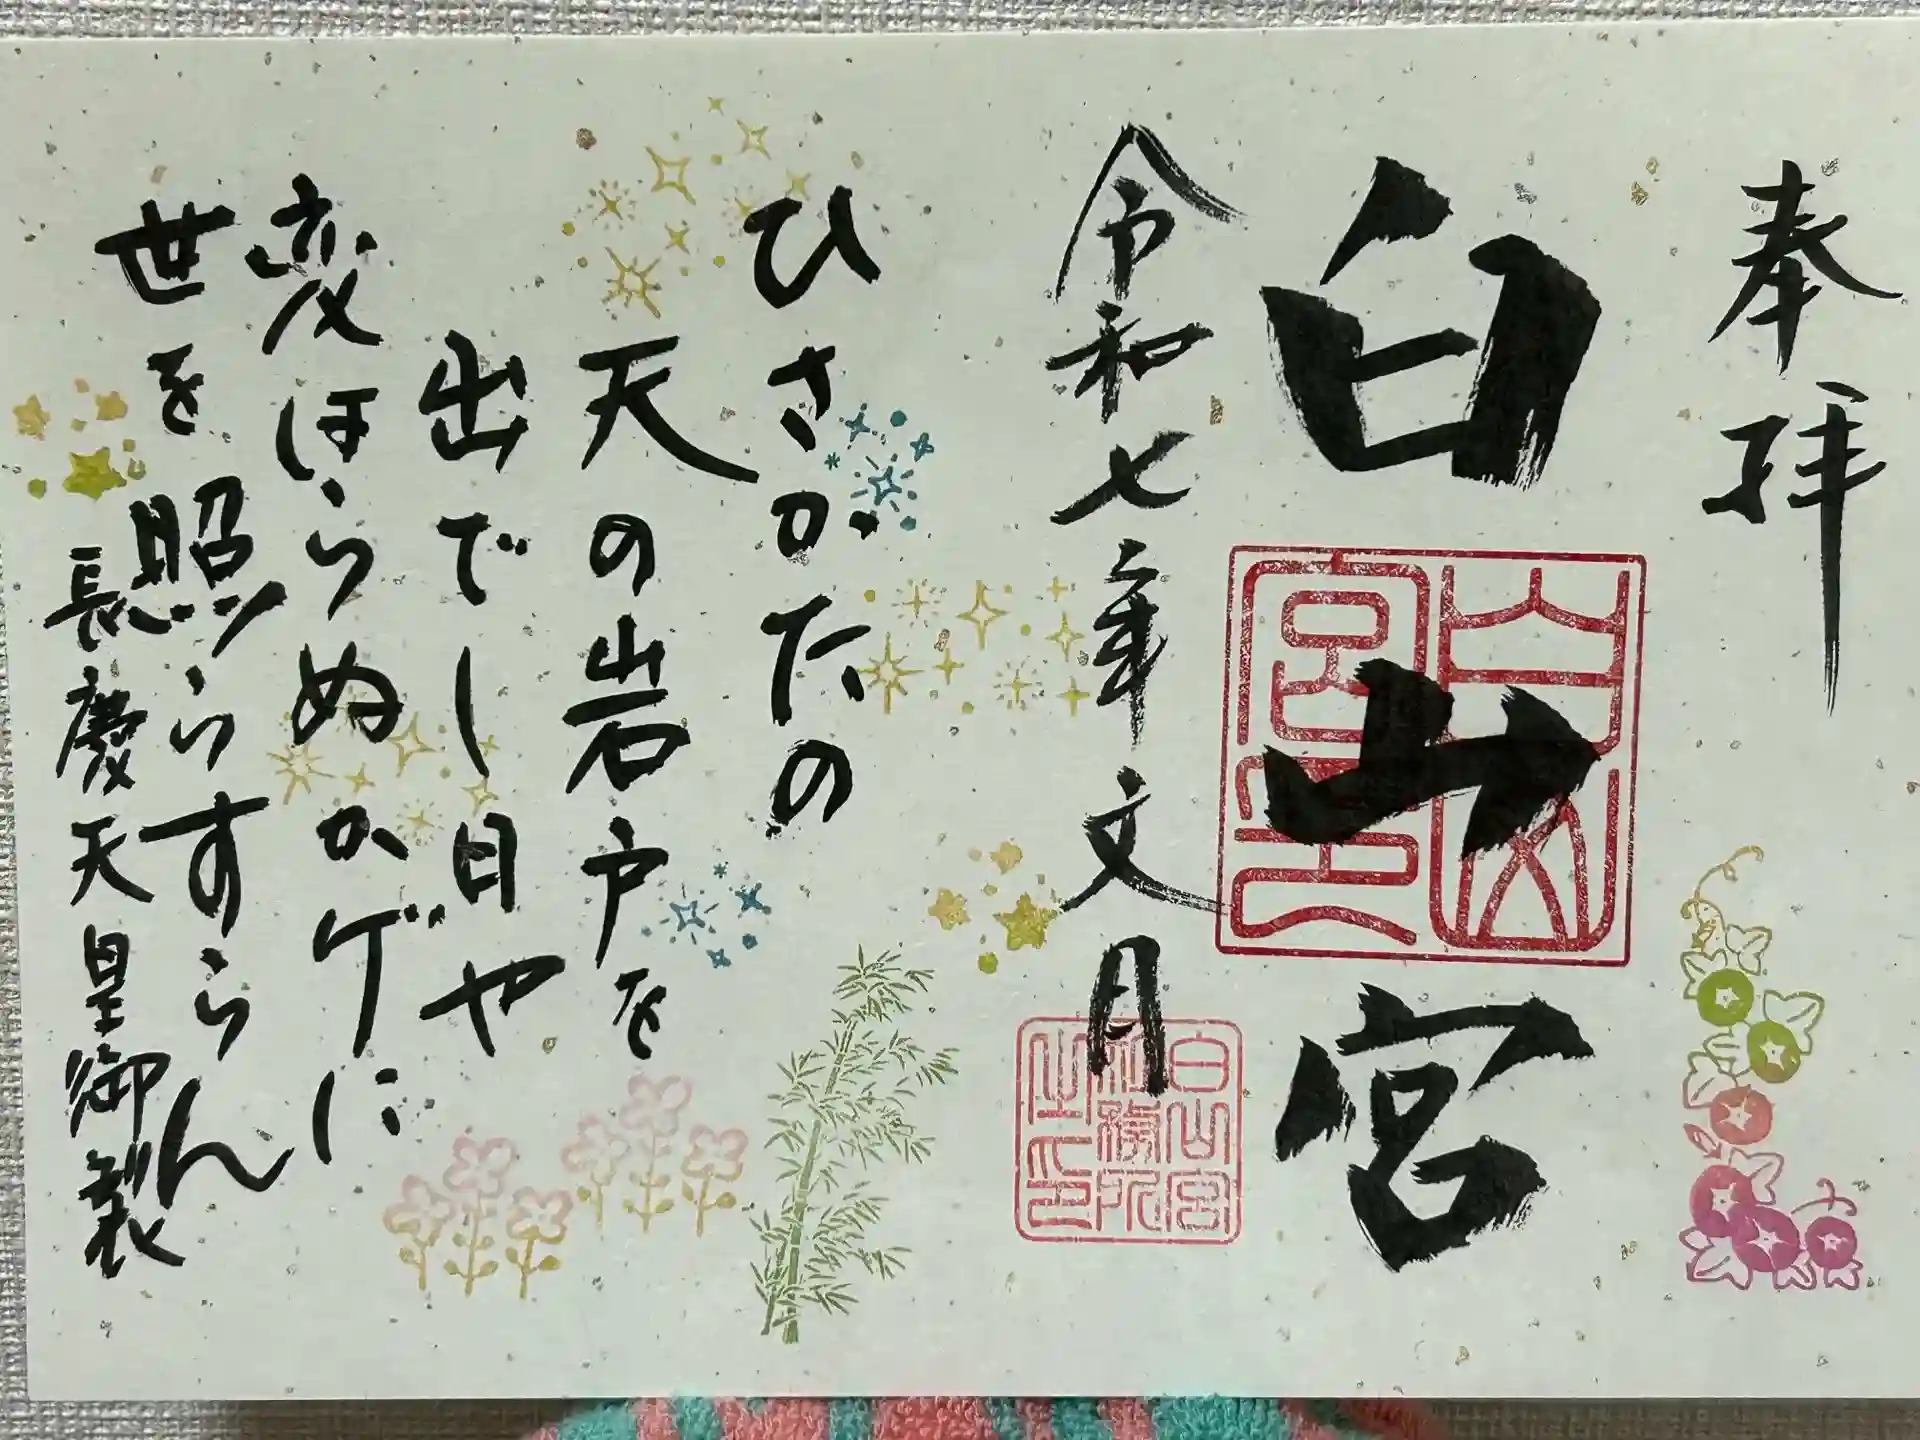 奉拝
白山宮
白山宮印
令和七年文月
白山宮
社務所
之印
ひさかたの
天の岩戸を
出でし日や
変ほらぬかげに
世を照らすらん
長慶天皇御製